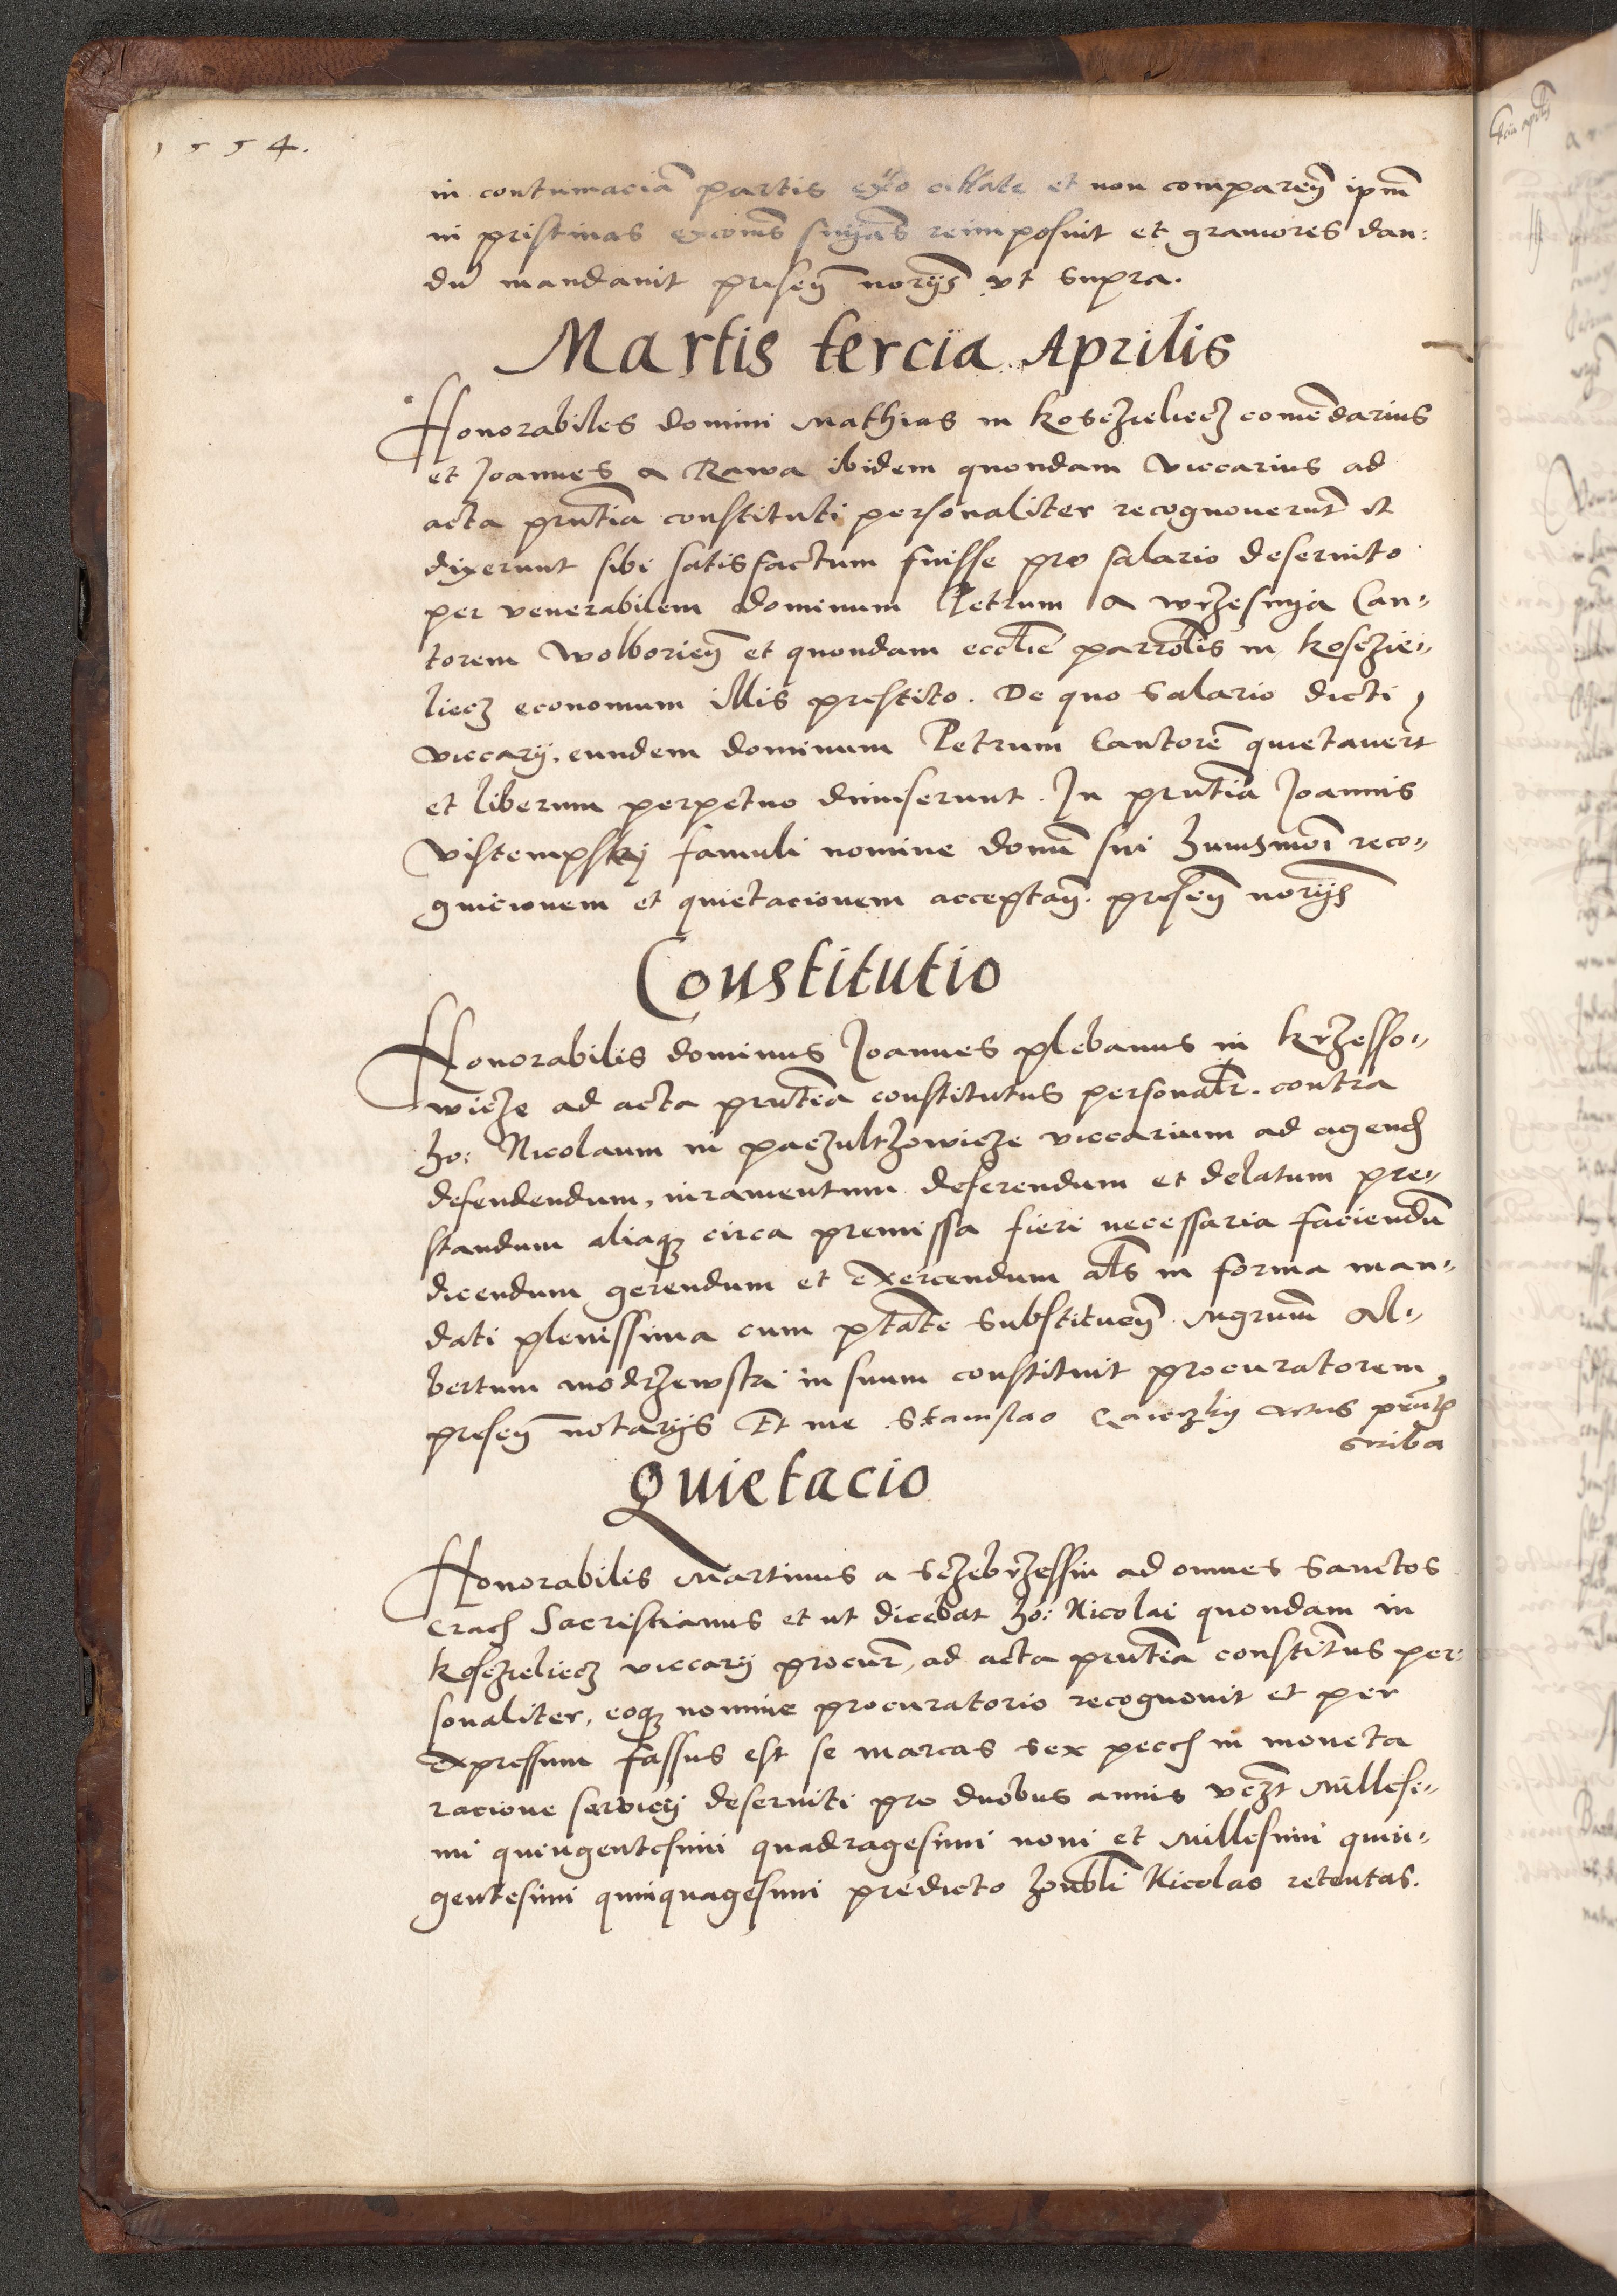 1554.
in contumaciã partis citate et non compareñ ipm̃
in pristinas excõis sñias reimposuit et graviores dan:
dũ mandavit preseñ norijs ut supra.
Martis tercia Aprilis
Honorabiles domini Mathias in Kosczielecz comẽdarius
et Joannes a Rawa ibidem quondam viccarius ad
acta prñtia constituti personaliter recognoverũt et
dixerunt sibi satisfactum fuisse pro salario deservito
per venerabilem dominum Petrum a Wrzesnija Can„
torem Wolborieñ et quondam ecclie parrolis in Kosczie„
liecz economum illis prestito. De quo salario dicti
viccarij. eundem dominum Petrum Cantorẽ quietavert
et liberum perpetuo dimiserunt. In prñtia Joannis
Vistempskij famuli nomine domĩ sui hmõi reco„
gnicionem et quietacionem acceptañ. preseñ norijs
Constitutio
Honorabilis dominus Joannes plebanus in Krzesso„
wicze ad acta prñtia constitutus personalr. contra
ho: Nicolaum in Paczultzowicze viccarium ad agend
defendendum, iuramentum deferendum et delatum pre„
standum aliaqz circa premissa fieri necessaria faciendũ
dicendum gerendum et exercendum als in forma man„
dati plenissima cum ptate substitueñ Mgrum Al„
bertum Modrzewski in suum constituit procuratorem,
preseñ notarijs Et me Stanislao actus prñtis
scriba
Quietacio
Honorabilis Martinus a Sczebrzessin ad omnes Sanctos
Crac Sacristianus et ut dicebat ho: Nicolai quondam in
Kosczieliecz viccarij procur, ad acta prñtia constitus per
sonaliter, eoqz nomine procuratorio recognovit et per
expressum fassus est se marcas sex pecc in moneta
racione servicij deserviti pro duobus annis vczt Millesi„
mi quingentesimi quadragesimi noni et Millesimi quin„
gentesimi quinquagesimi predicto honbli Nicolao retentas.